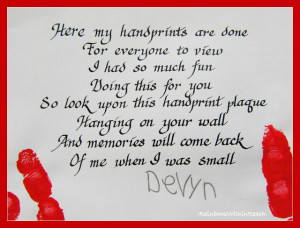 Here my handprints are done
For everyone to view
I had so much fun
Doing this for you
So look upon this handprint plaque
Hanging on your wall
And memories will come back
Of me when I was small
Devyn
RainbowsWithinReach